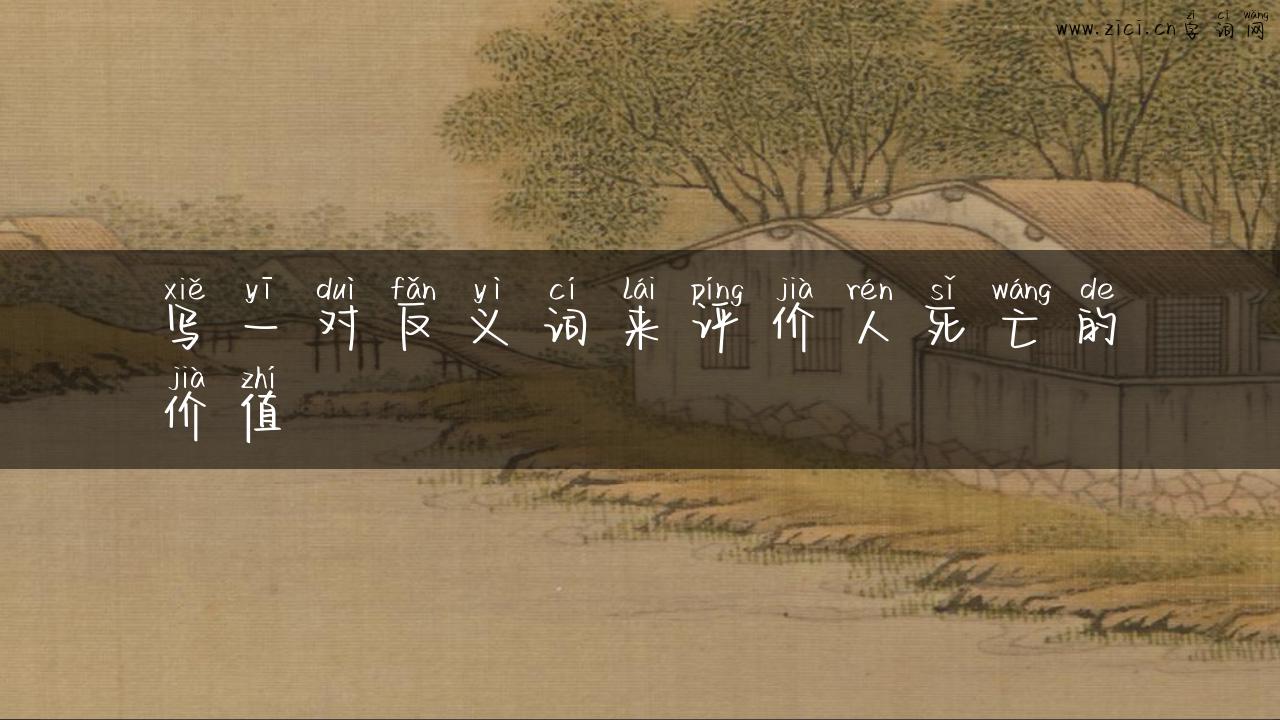 zì cí wǎng
www.zici.cn字词网
xiě yī duì fǎn yì cí lái píng jià rén sǐ wáng de
写一对反义词来评价人死亡的
jià zhí
价值